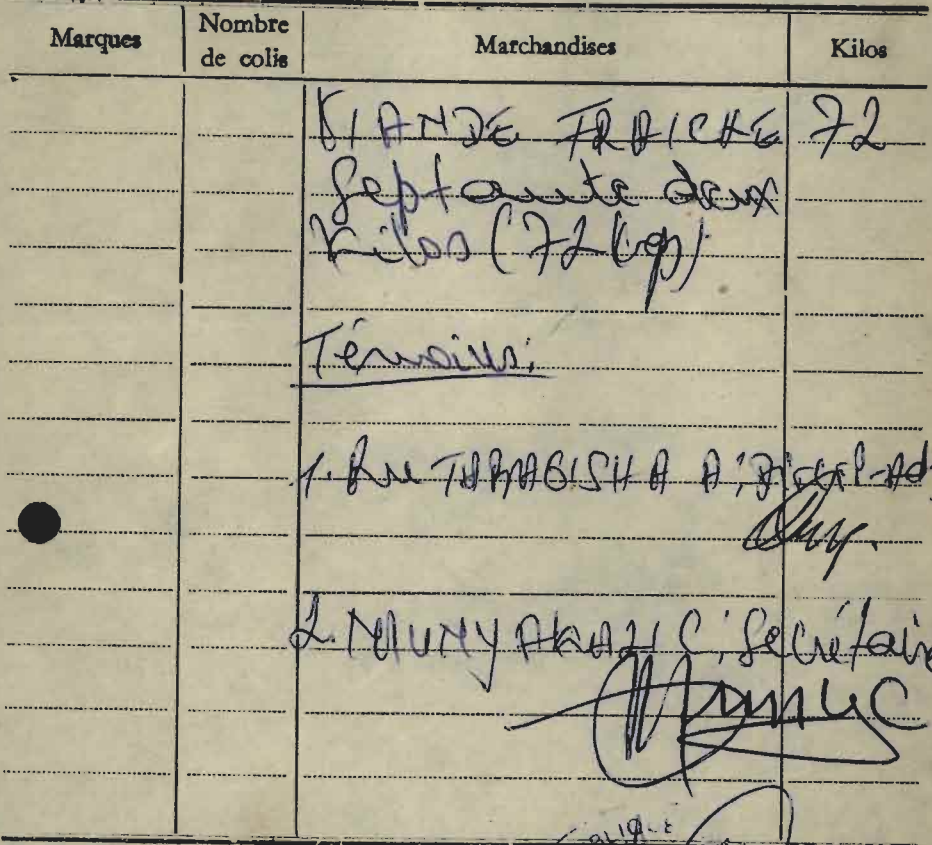 Marques Nombre de colis Marchandises Kilos
VIANDE FRAICHE 72
Septante deux
kilos (72 kgs)
Témoins:
1. TABAGISHA A;
2. C; Secrétaire